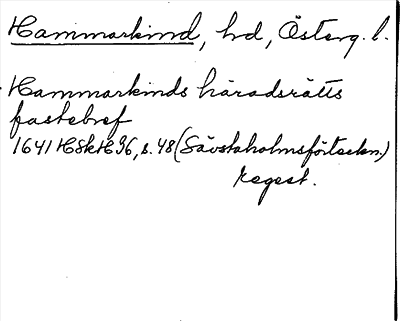 Hammarkind, hd, Österg. l.
Hammarkinds häradsrätts
fastebref
1641 HSkH 96, s. 48 (Säfstaholmsförteckn.)
regest.